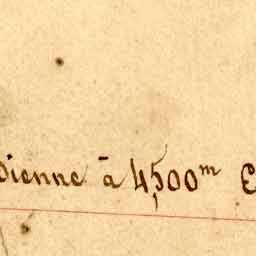 dienne à 4,500ᵐ E